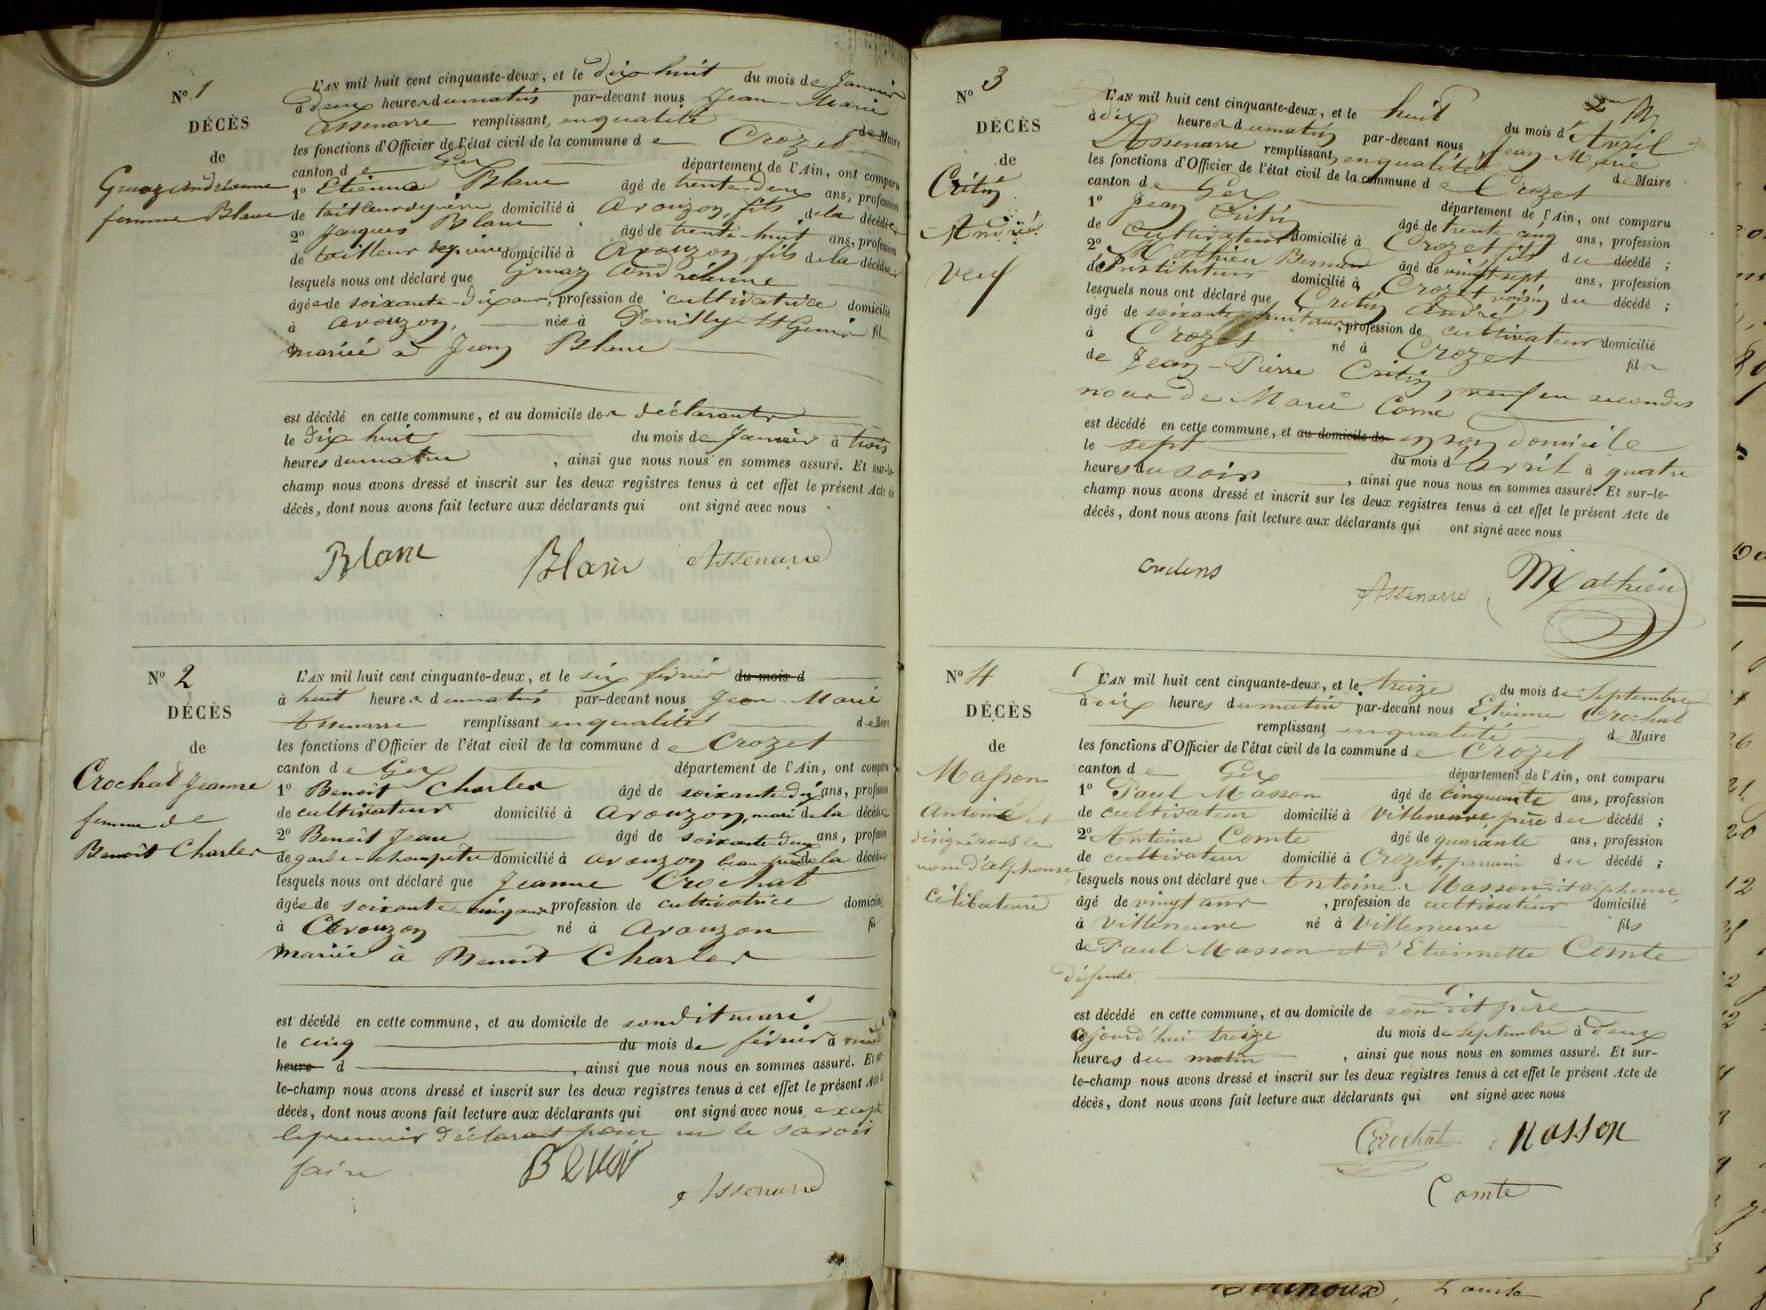 No 1
DÉCÈS
de
Gruaz Andréanne
femme Blanc
L'AN mil huit cent cinquante-deux, et le dix huit du mois de Janvier
à deux heures du matin par-devant nous Jean-Marie
Assenarre remplissant, en qualité de Maire
les fonctions d'Officier de l'état civil de la commune de Crozet
canton de Gex département de l'Ain, ont comparu
1o Etienne Blanc âgé de trente-deux ans, profession
de tailleur de pierre domicilié à Avouzon, fils de la décédée
2o Jacques Blanc âgé de trente-huit ans, profession
de tailleur de pierre domicilié à Avouzon, fils de la décédée
lesquels nous ont déclaré que Gruaz Andréanne
âgée de soixante-dix ans, profession de cultivatrice domicilié
à Avouzon, née à Pouilly-St Genis fil
mariée à Jean Blanc
est décédé en cette commune, et au domicile des déclarants
le dix huit du mois de Janvier à trois
heures du matin, ainsi que nous nous en sommes assuré. Et sur-le-
champ nous avons dressé et inscrit sur les deux registres tenus à cet effet le présent Acte de
décès, dont nous avons fait lecture aux déclarants qui ont signé avec nous
Blanc Blanc Assenarre
No 2
DÉCÈS
de
Crochat Jeanne
femme de
Benoît Charles
L'AN mil huit cent cinquante-deux, et le six février du mois d
à huit heures du matin par-devant nous Jean-Marie
Assenarre remplissant en qualité de Maire
les fonctions d'Officier de l'état civil de la commune de Crozet
canton de Gex département de l'Ain, ont comparu
1o Benoît Charles âgé de soixante-dix ans, profession
de cultivateur domicilié à Avouzon, mari de la décédée
2o Benoît Jean âgé de soixante-deux ans, profession
de garde-champêtre domicilié à Avouzon beau-frère de la décédée
lesquels nous ont déclaré que Jeanne Crochat
âgée de soixante-cinq ans profession de cultivatrice domicilié
à Avouzon né à Avouzon fil
mariée à Benoît Charles
est décédé en cette commune, et au domicile de son dit mari
le cinq du mois de février à
heure d, ainsi que nous nous en sommes assuré. Et sur-
le-champ nous avons dressé et inscrit sur les deux registres tenus à cet effet le présent Acte de
décès, dont nous avons fait lecture aux déclarants qui ont signé avec nous excepté
le premier déclarant pour ne le savoir
faire
Benoit
Assenarre
No 3
DÉCÈS
de
Critin
André
veuf
L'AN mil huit cent cinquante-deux, et le huit du mois d'Avril
à dix heures du matin par-devant nous Jean-Marie
Assenarre remplissant, en qualité de Maire
les fonctions d'Officier de l'état civil de la commune de Crozet
canton de Gex département de l'Ain, ont comparu
1o Jean Critin âgé de trente-cinq ans, profession
de cultivateur domicilié à Crozet, fils du décédé ;
2o Mathieu Bernard âgé de vingt sept ans, profession
d'Instituteur domicilié à Crozet voisin du décédé ;
lesquels nous ont déclaré que Critin André
âgé de soixante-huit ans, profession de cultivateur domicilié
à Crozet né à Crozet fils
de Jean-Pierre Critin, veuf en secondes
noces de Marie Corne
est décédé en cette commune, et au domicile de en son domicile
le sept du mois d'Avril à quatre
heures du soir, ainsi que nous nous en sommes assuré. Et sur-le-
champ nous avons dressé et inscrit sur les deux registres tenus à cet effet le présent Acte de
décès, dont nous avons fait lecture aux déclarants qui ont signé avec nous
Assenarre Mathieu
No 4
DÉCÈS
de
Masson
Antoine et
désigné sous le
nom d'alphonse
Célibataire
L'AN mil huit cent cinquante-deux, et le treize du mois de Septembre
à dix heures du matin par-devant nous Etienne Crochat
remplissant en qualité de Maire
les fonctions d'Officier de l'état civil de la commune de Crozet
canton de Gex département de l'Ain, ont comparu
1o Paul Masson âgé de cinquante ans, profession
de cultivateur domicilié à Villeneuve, père du décédé ;
2o Antoine Comte âgé de quarante ans, profession
de cultivateur domicilié à Crozet, parrain du décédé ;
lesquels nous ont déclaré que Antoine Masson dit alphonse,
âgé de vingt ans, profession de cultivateur domicilié
à Villeneuve né à Villeneuve fils
de Paul Masson et d'Etiennette Comte
défunte
est décédé en cette commune, et au domicile de son dit père
aujourd'hui treize du mois de septembre à deux
heures du matin, ainsi que nous nous en sommes assuré. Et sur-
le-champ nous avons dressé et inscrit sur les deux registres tenus à cet effet le présent Acte de
décès, dont nous avons fait lecture aux déclarants qui ont signé avec nous
Crochat Masson
Comte